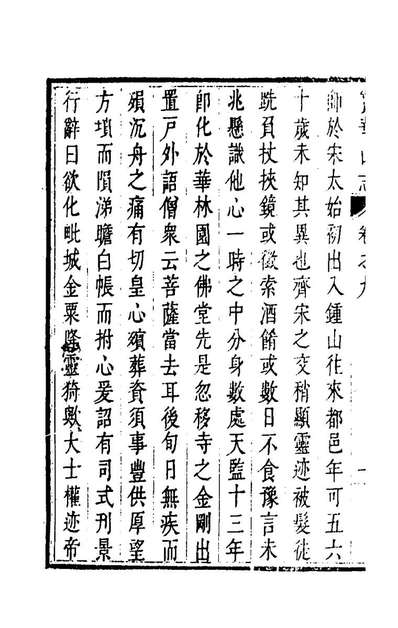 寶華山志 卷之九 一
師於宋太始初出入鍾山往來都邑年可五六
十歲未知其異也齊宋之交稍顯靈迹被髮徒
跣負杖挾鏡或徵索酒餚或數日不食豫言未
兆懸識他心一時之中分身數處天監十三年
卽化於華林園之佛堂先是忽移寺之金剛出
置戸外語僧衆云菩薩當去耳後旬日無疾而
殞沉舟之痛有切皇心殯葬資須事豐供厚望
方墳而隕涕瞻白帳而拊心爰詔有司式刊景
行辭曰欲化毗城金粟降靈猗歟大士權迹帝